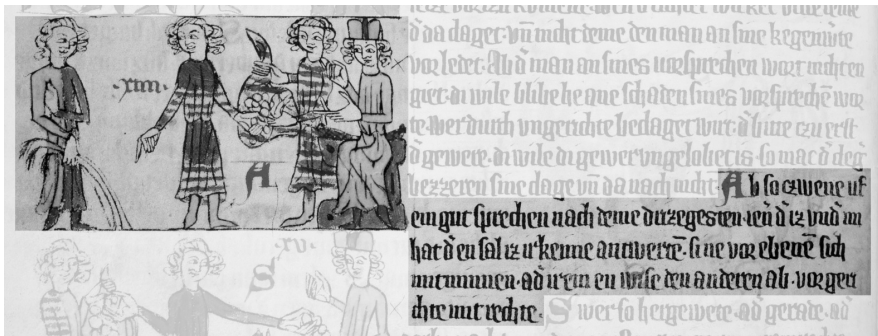 ·xiiii·
A
·xv·
S
d̕ da daget· vn̄ nicht deme den man an sine kegenw̄te
vor ledet· Ab d̕ man an sines vorsprechen wort nicht en
giet· di wile blibe he ane schaden sines vorsprechē wor
te· wer durch vngerichte bedaget wirt d̕ bitte czu erst
d̕ gewere· di wile di gewer vngelobet is· so mac d̕ deg̕
bezzeren sine dage vn̄ da nach nicht· Ab so czwene uf
ein gut sprechen nach deme drizegesten· wen̄ d̕ iz vnd̕ im
hat d̕ en sal iz ir kenime antwertē· sine vor ebenē sich
mit minnen· ad̕ ir ein en wise den anderen ab· vor geri
chte mit rechte· Swer so hergewete· ad̕ gerade· ad̕